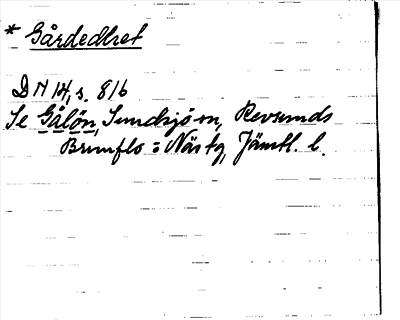 * Gårdedhet
DN 14, s. 816
Se Gålön, Sundsjö sn, Revsunds
Brunflo o Näs tg, Jämtl. l.